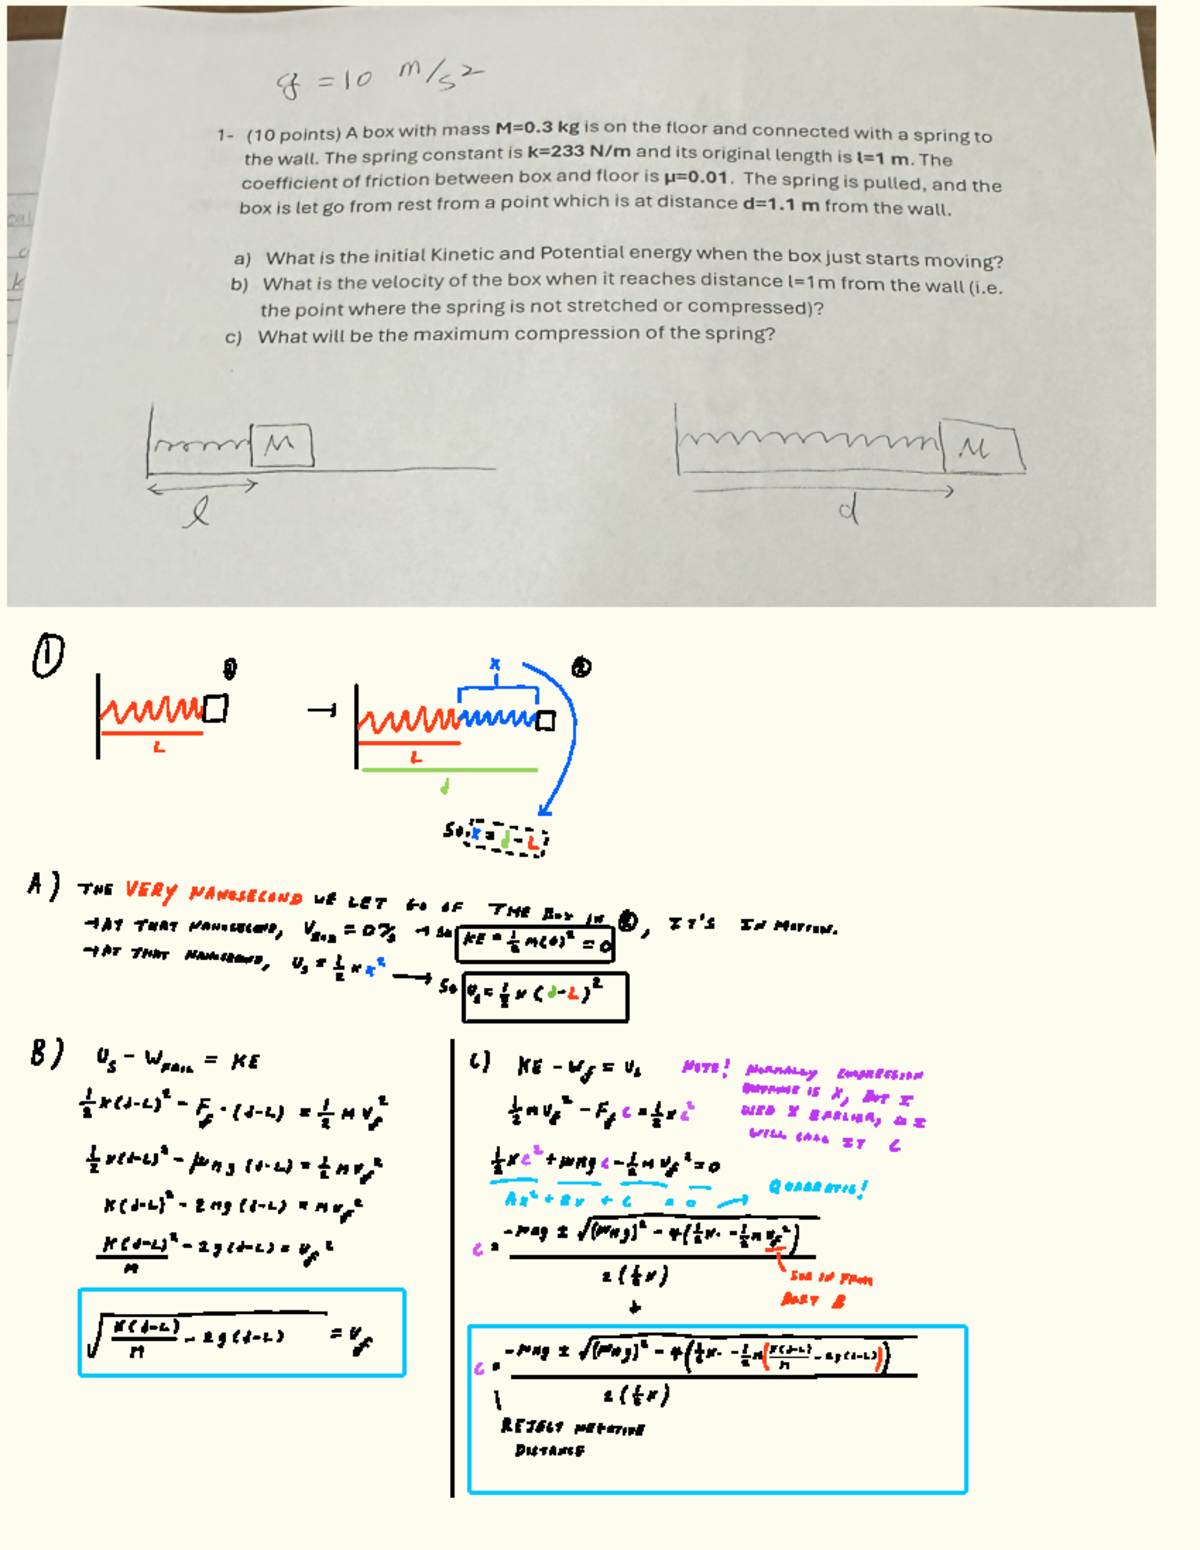 g = 10 m/s²
1- (10 points) A box with mass M=0.3 kg is on the floor and connected with a spring to
the wall. The spring constant is k=233 N/m and its original length is l=1 m. The
coefficient of friction between box and floor is μ=0.01. The spring is pulled, and the
box is let go from rest from a point which is at distance d=1.1 m from the wall.
a) What is the initial Kinetic and Potential energy when the box just starts moving?
b) What is the velocity of the box when it reaches distance l=1m from the wall (i.e.
the point where the spring is not stretched or compressed)?
c) What will be the maximum compression of the spring?
M
M
l
d
①
x
②
L
L
d
So, x = d - L
A) THE VERY NANOSECOND WE LET GO OF THE BOX IN ②, IT'S IN MOTION.
→ AT THAT NANOSECOND, V = 0 → So KE = ½ M(0)² = 0
→ AT THAT NANOSECOND, Us = ½ K x² → So Us = ½ K (d-L)²
B) Us - W = KE
½ K(d-L)² - Ff · (d-L) = ½ M Vf²
½ K(d-L)² - μmg (d-L) = ½ M Vf²
K(d-L)² - 2mg (d-L) = M Vf²
K(d-L)²/M - 2g(d-L) = Vf²
√(K(d-L)/M - 2g(d-L)) = Vf
C) KE - Wf = Us
NOTE! NORMALLY COMPRESSION
DISTANCE IS X, BUT I
USED X EARLIER, SO I
WILL CALL IT C
½ M Vf² - Ff C = ½ K C²
½ K C² + μmg C - ½ M Vf² = 0
Ax² + Bx + C = 0 → QUADRATIC!
C = (-μmg ± √((μmg)² - 4(½K · -½ M Vf²))) / 2(½K)
SUB IN FROM
PART B
C = (-μmg ± √((μmg)² - 4(½K · -½ M(K(d-L)/M - 2g(d-L))))) / 2(½K)
REJECT NEGATIVE
DISTANCE